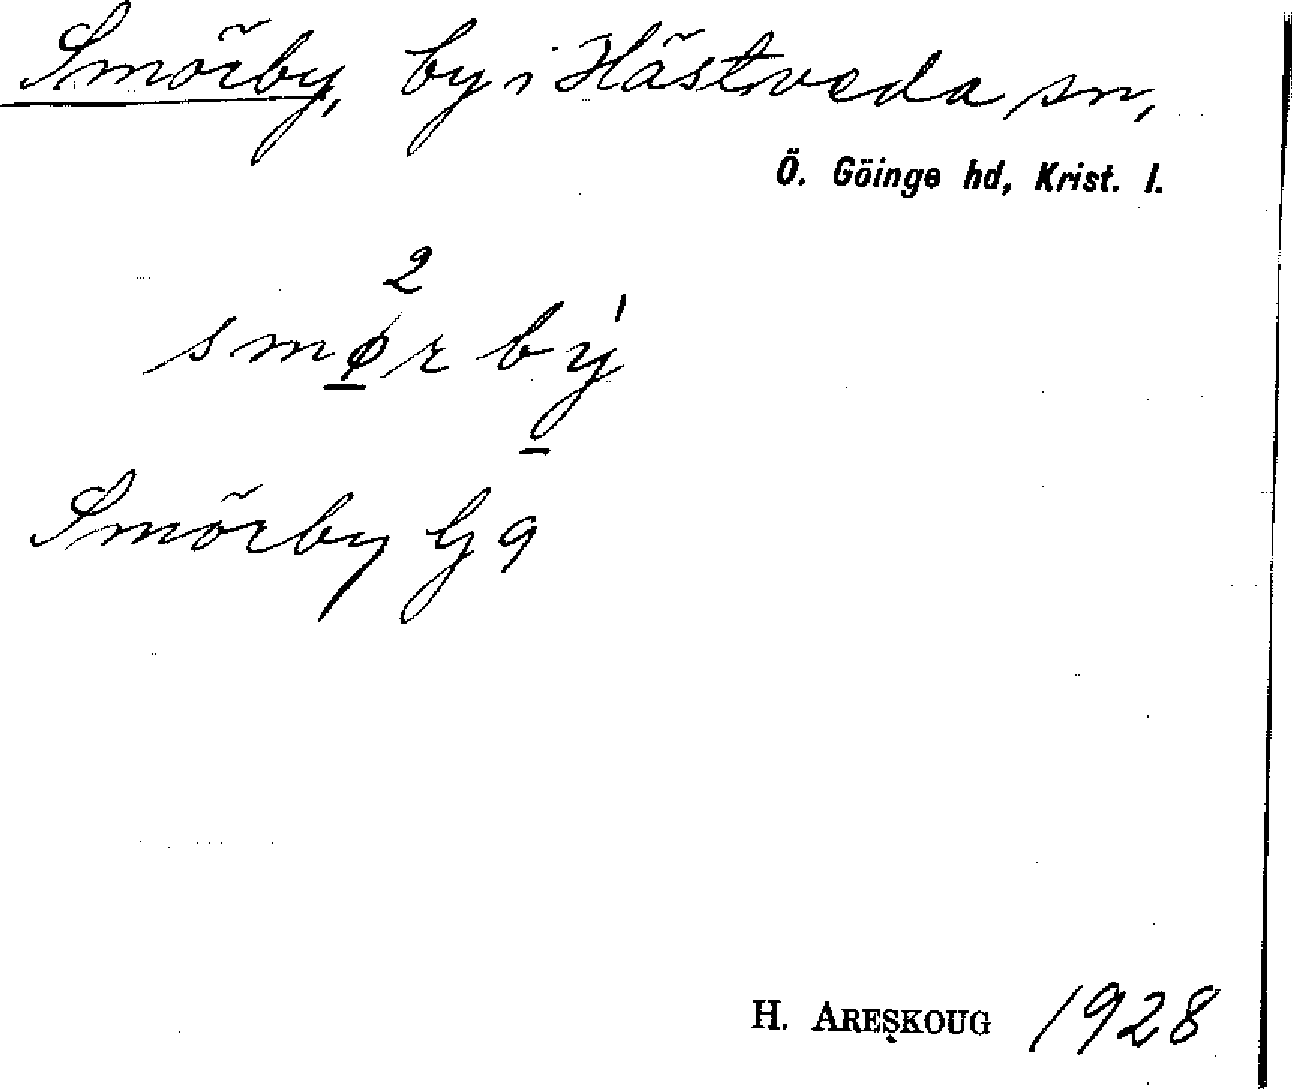 Smörby, by i Hästveda sn,
Ö. Göinge hd, Krist. l.
2
smørbý
Smörby G 9
H. ARESKOUG 1928